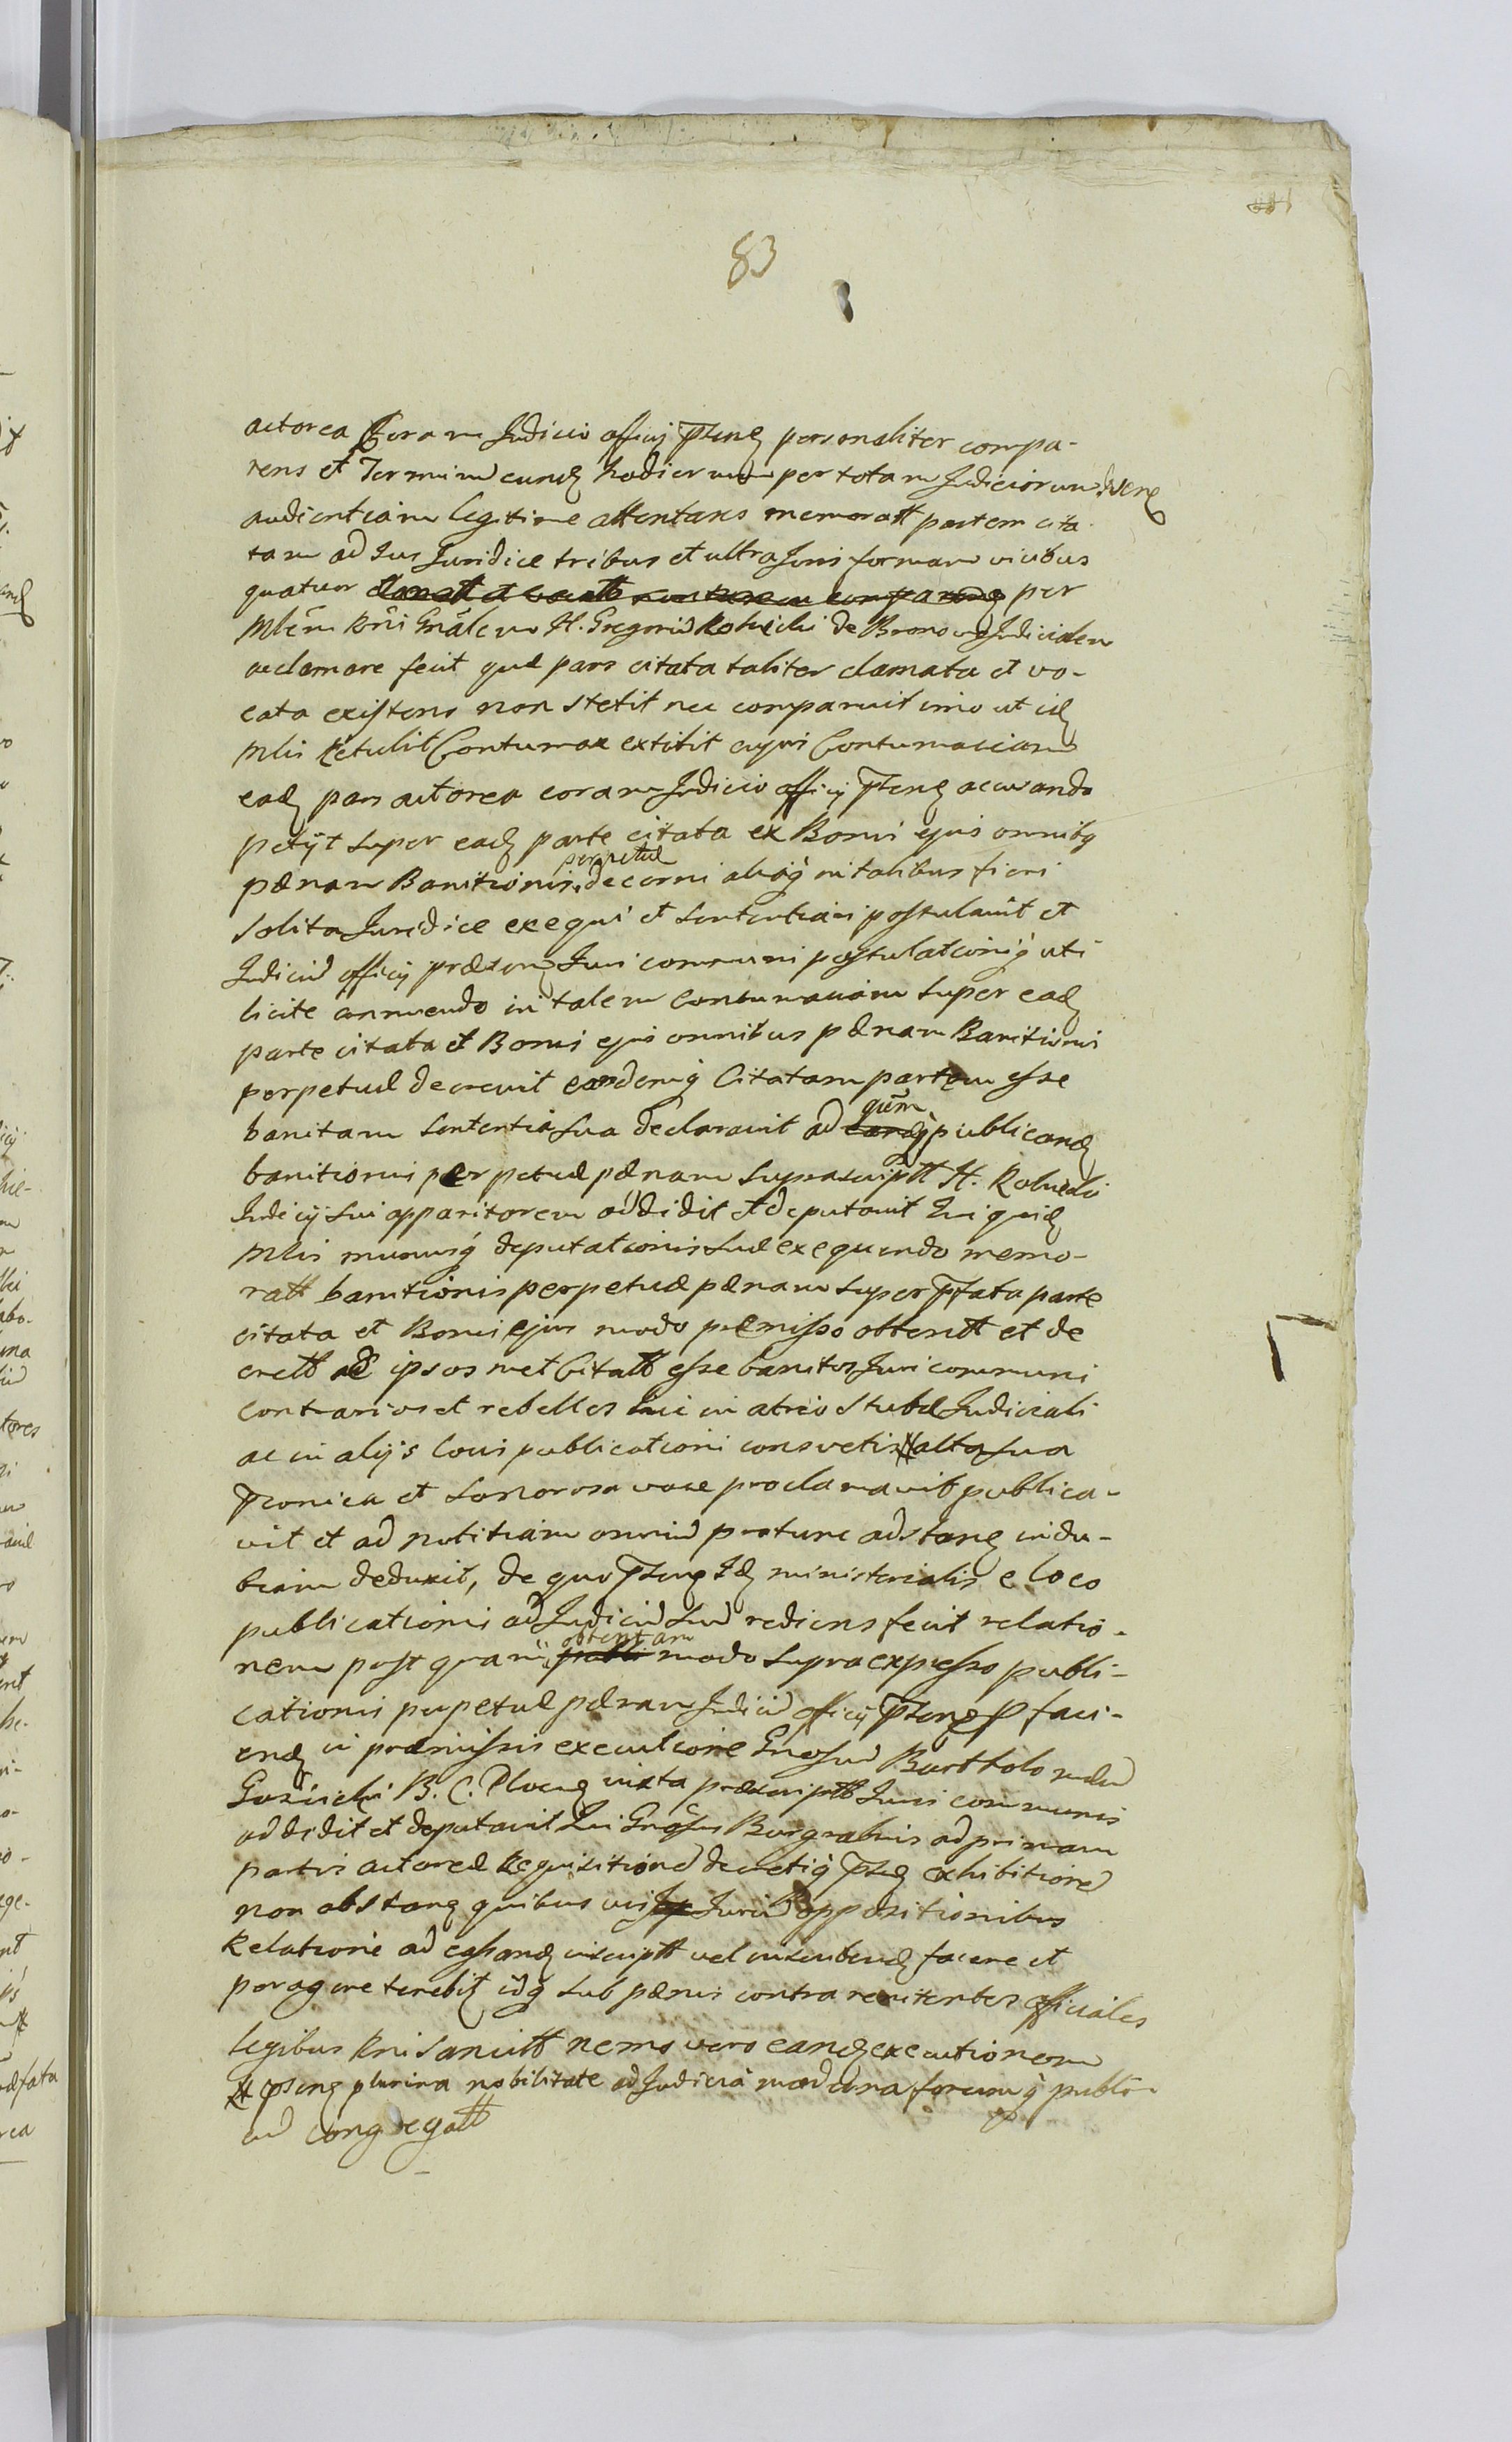 83
actorea Coram Judicio officij pñtng personaliter compa-
rens et Terminũ eundẽ hodiernum per totam Judiciorum
audientiam legitime attentans memoratt partem cita
tam ad Jus Juridice tribus et ultra Juris formam vicibus
quatuor per
Mlẽm Rñi Gñalem H. Gregoriũ de Judicialem
acclamare fecit quæ pars citata taliter clamata et vo-
cata existens non stetit nec comparuit imo ut idẽ
Mlis retulit Contumax extitit cujus Contumaciam
eadẽ pars actorea coram Judicio officij pñtng accusando
petijt super eadẽ parte citata ex Bonis ejus omnibq
pænam Banitionis perpetuæ decerni aliaq̃ in talibus fieri
solita Juridice exequi et sententiari postulavit et
Judiciũ officij præsens Juri communi postulationiq̃ uti
licite annuendo in talem contumaciam super eadẽ
parte citata et Bonis ejus omnibus pænam Banitionis
perpetuæ decrevit eandemq̃ Citatam partem esse
banitam sententia sua declaravit ad quam publicandẽ
banitionis perpetuæ pænam suprascriptt H.
Judicij sui apparitorem addidit et deputavit Qui quidẽ
Mlis munusq̃ deputationis suæ exequendo memo-
ratt banitionis perpetuæ pænam super pfata parte
citata et Bonis ejus modo præmisso obtentt et de
crett ac ipsos met Citatt esse banitos Juri communi
contrarios et rebelles hic in atrio Stubæ Judicialis
ac in alijs locis publicationi consvetis alta sua
pconica et sonorosa voce proclamavit publica-
vit et ad notitiam omniũ protunc adstang indu-
biam deduxit, de quo pñtng Idẽ ministerialis e loco
publicationis ad Judiciũ suũ rediens fecit relatio-
nem post quam obtentam modo supra expresso publi-
cationis perpetuæ pænam Judiciũ officij pñtng P faci-
endẽ in præmissis executione Gñosum Bartholomæũ
B. C. Plocen juxta præscriptt Juris communis
addidit et deputavit Qui Gñosus Burgrabius ad primam
partis actoreæ Requisitionẽ decretiq̃ pñtg exhibitionẽ
non obstang quibus vis Juriũ oppositionibus
Relationẽ ad cassandẽ inscriptt vel inscribendẽ facere et
peragere tenebit idq̃ sub pænis contra renitentes officiales
legibus Rni sancitt nemo vero eandẽ executionem
pñteng plurima nobilitate ad Judicia forumq̃ publi-
cũ congregatt